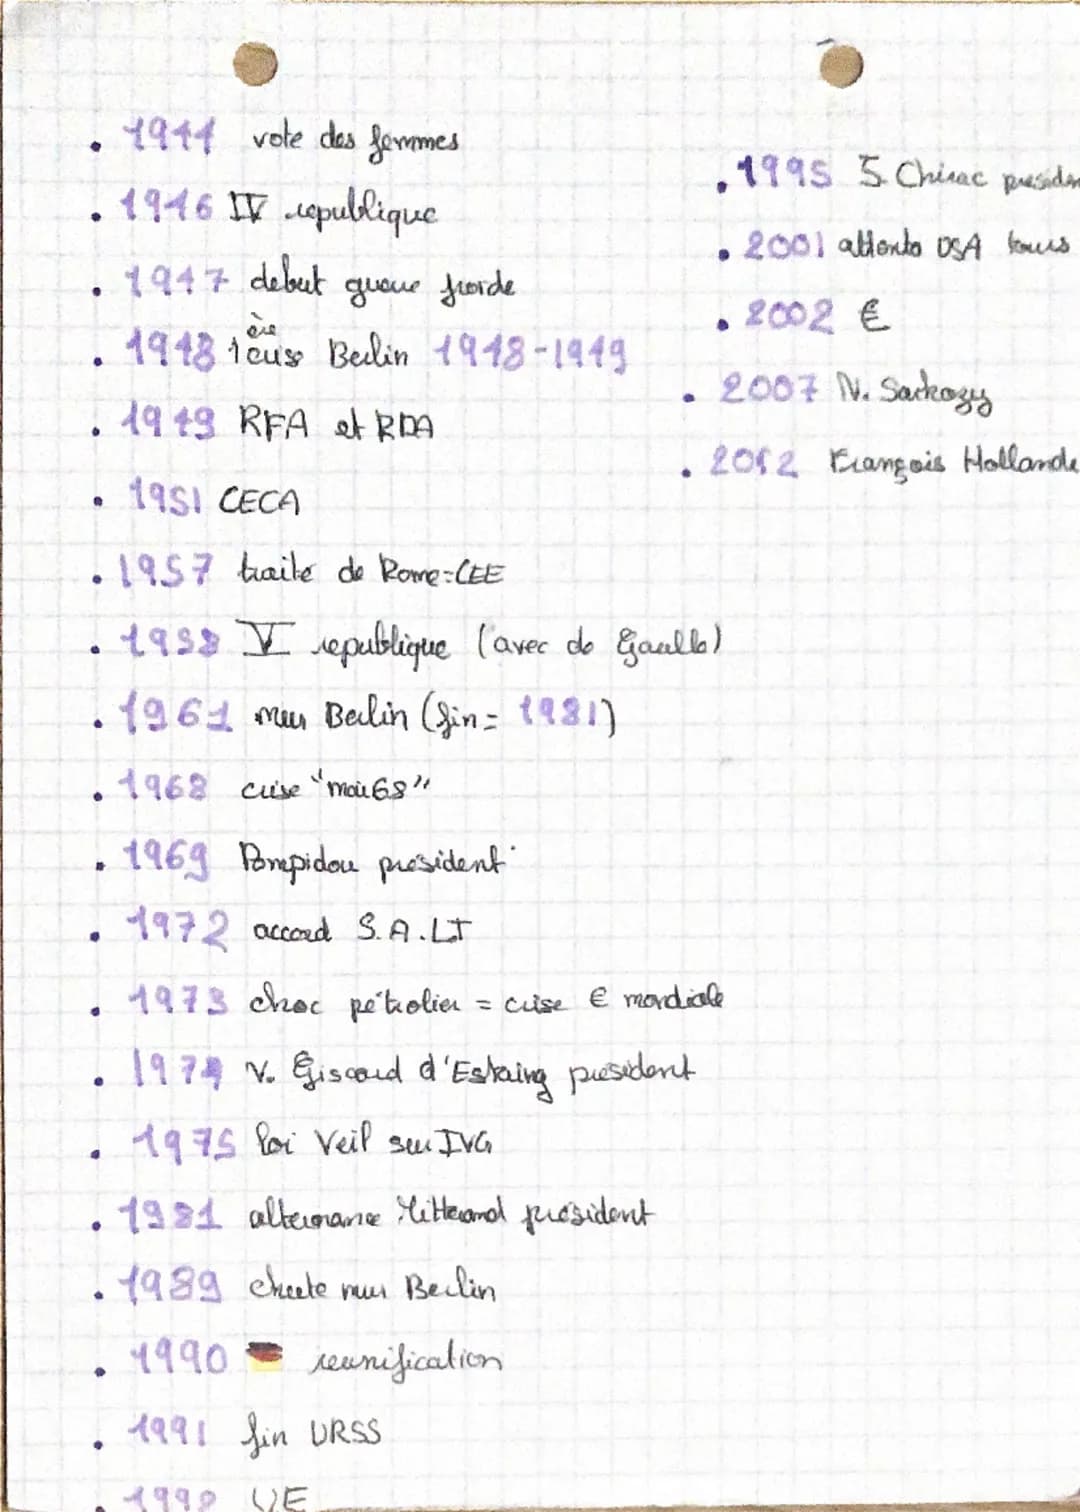 • 1944 vote des femmes
• 1946 IV republique
• 1947 debut guerre froide
• 1948 1ère crise Berlin 1948-1949
• 1949 RFA et RDA
• 1951 CECA
• 1957 traité de Rome=CEE
• 1958 V republique (avec de Gaulle)
• 1961 mur Berlin (fin= 1981)
• 1968 crise "mai 68"
• 1969 Pompidou président
• 1972 accord S.A.LT
• 1973 choc pétrolier = crise € mondiale
• 1974 V. Giscard d'Estaing président
• 1975 loi Veil sur IVG
• 1981 alternance Mitterand président
• 1989 chute mur Berlin
• 1990 reunification
• 1991 fin URSS
• 1992 UE
• 1995 J. Chirac presiden
• 2001 attenta USA tours
• 2002 €
• 2007 N. Sarkozy
• 2012 François Hollande